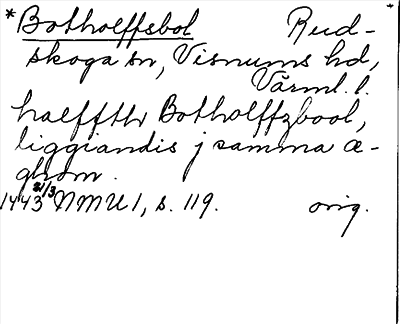 *Botholffsbol Rud-
skoga sn, Visnums hd,
Värml. l.
halffthr Botholffzbool,
liggiandis j samma æ-
ghom.
1443 21/3 NMU 1, s. 119. orig.